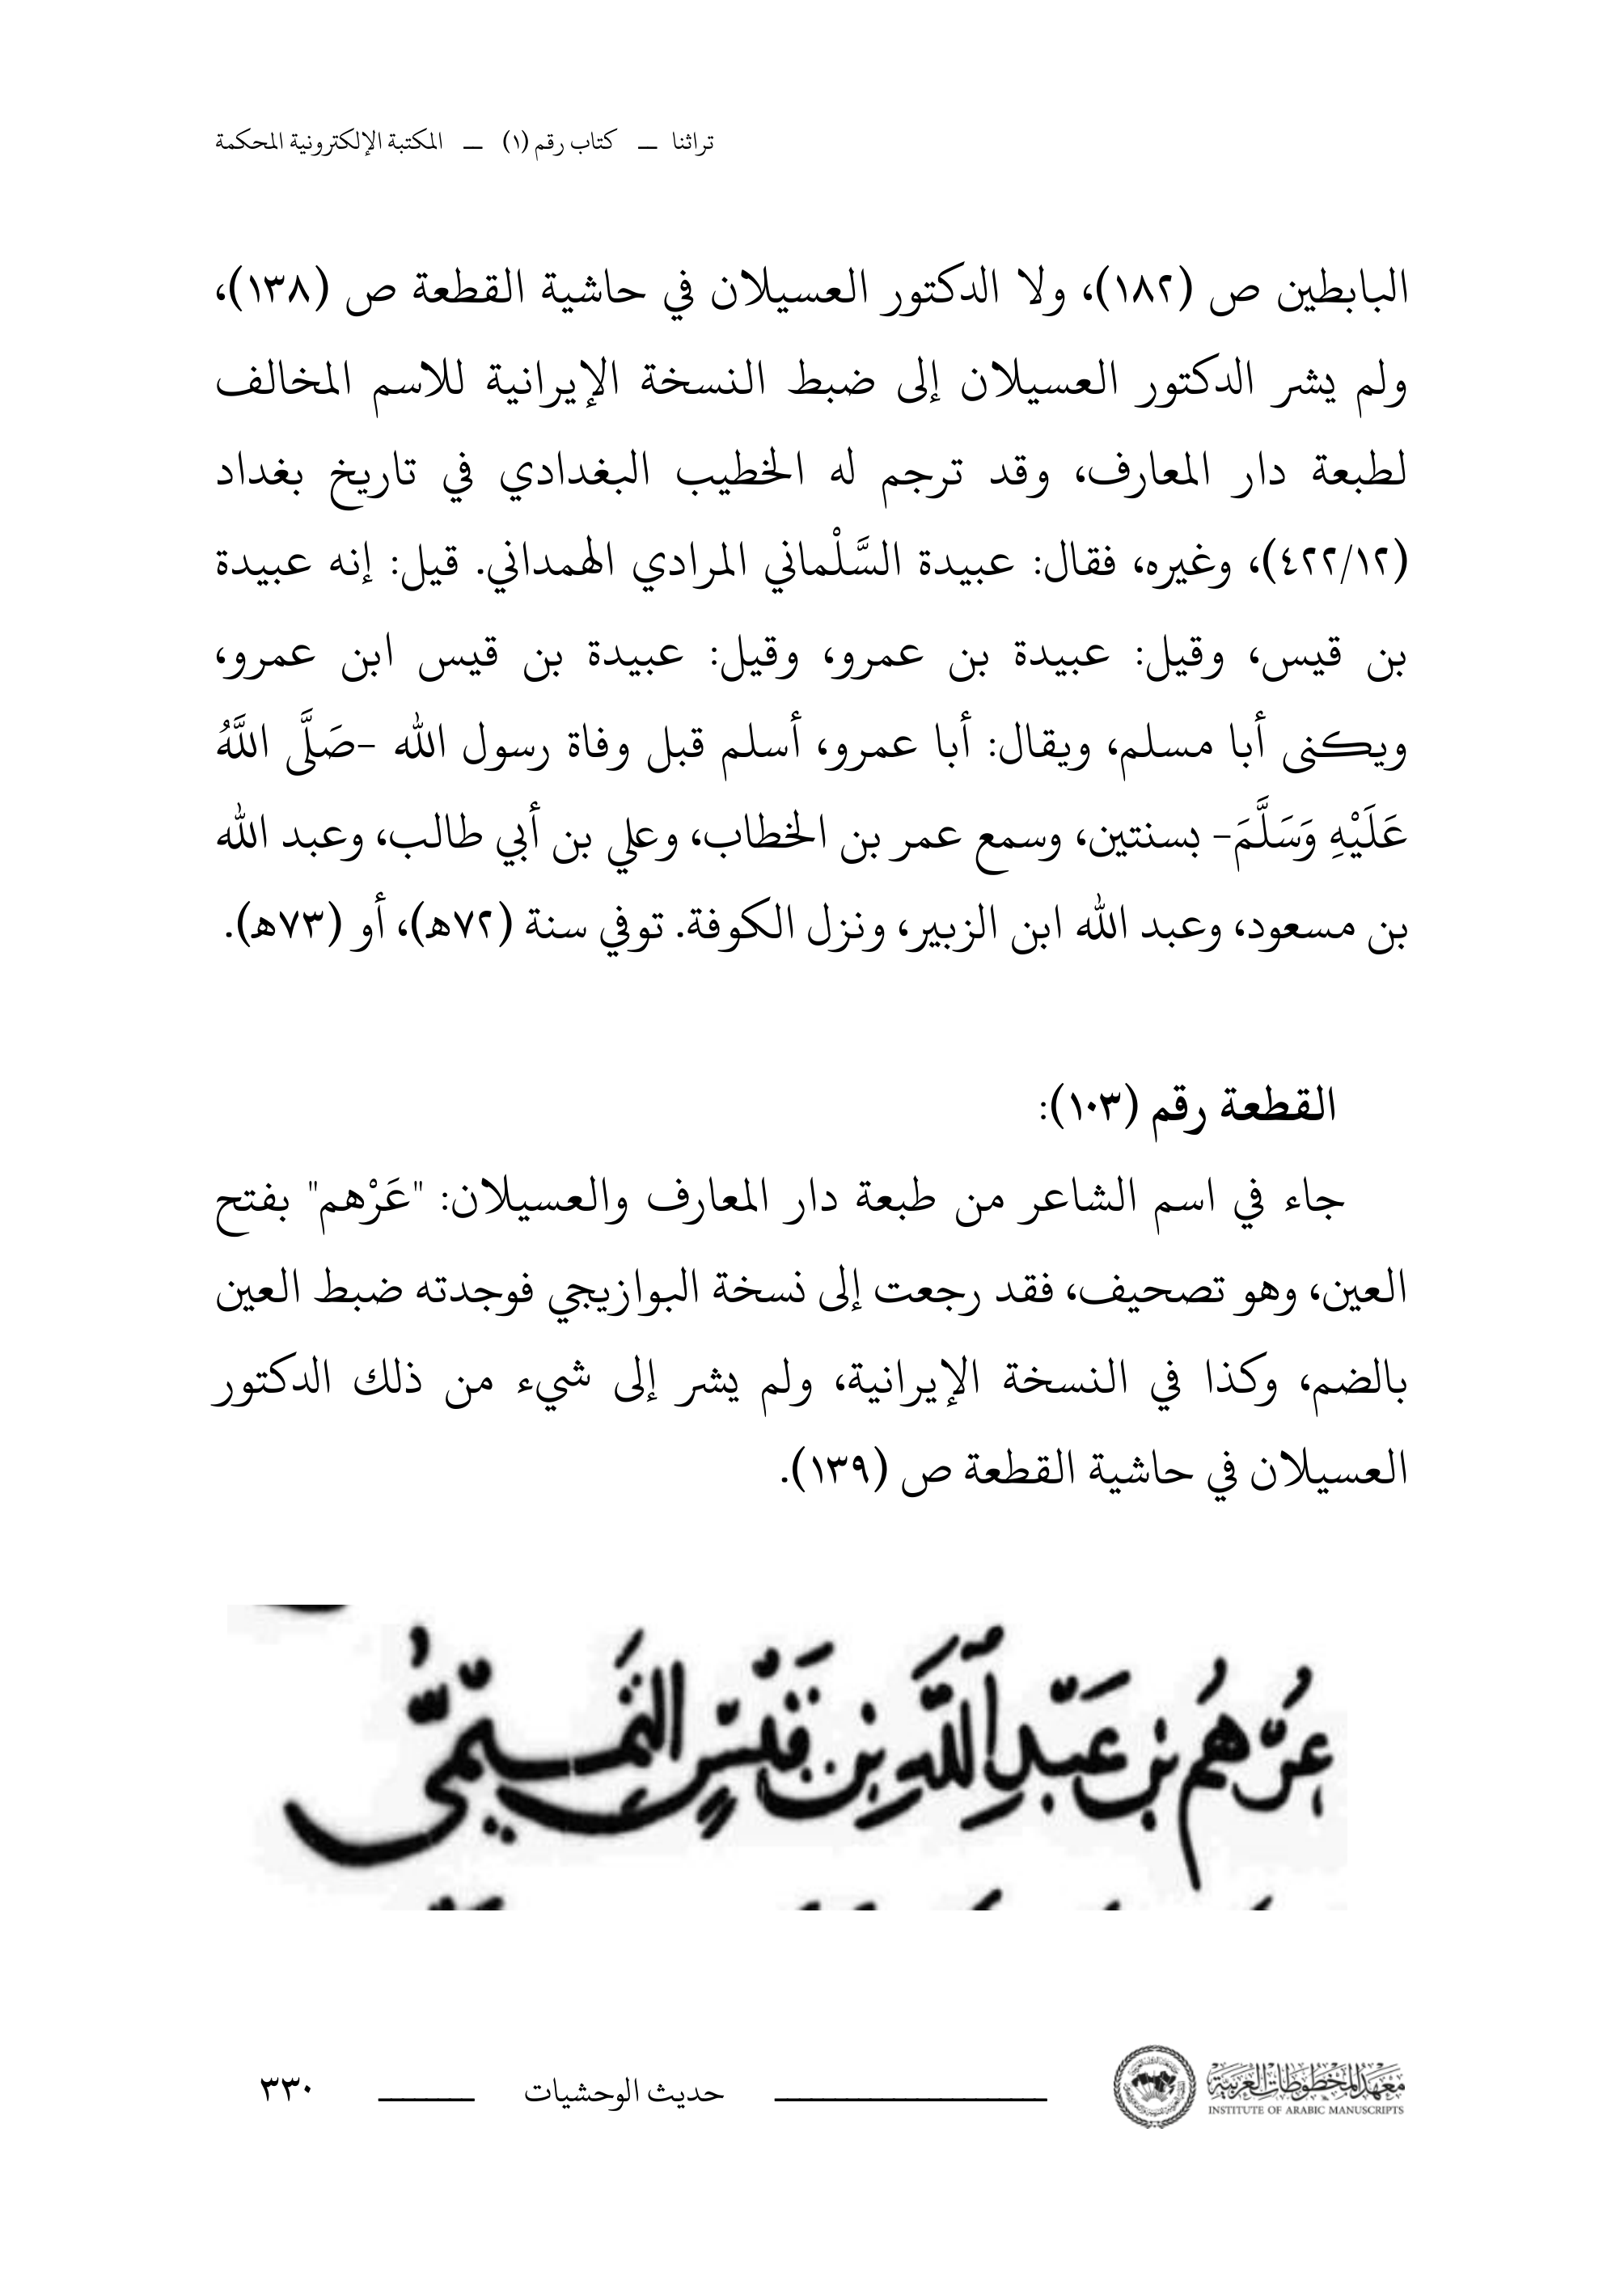 تراثنا — كتاب رقم (١) — المكتبة الإلكترونية المحكمة
البابطين ص (١٨٢)، ولا الدكتور العسيلان في حاشية القطعة ص (١٣٨)،
ولم يشر الدكتور العسيلان إلى ضبط النسخة الإيرانية للاسم المخالف
لطبعة دار المعارف، وقد ترجم له الخطيب البغدادي في تاريخ بغداد
(٤٢٢/١٢)، وغيره، فقال: عبيدة السَّلْماني المرادي الهمداني. قيل: إنه عبيدة
بن قيس، وقيل: عبيدة بن عمرو، وقيل: عبيدة بن قيس ابن عمرو،
ويكنى أبا مسلم، ويقال: أبا عمرو، أسلم قبل وفاة رسول الله -صَلَّى اللَّهُ
عَلَيْهِ وَسَلَّمَ- بسنتين، وسمع عمر بن الخطاب، وعلي بن أبي طالب، وعبد الله
بن مسعود، وعبد الله ابن الزبير، ونزل الكوفة. توفي سنة (٧٢ه)، أو (٧٣ه).
القطعة رقم (١٠٣):
جاء في اسم الشاعر من طبعة دار المعارف والعسيلان: "عَرْهم" بفتح
العين، وهو تصحيف، فقد رجعت إلى نسخة البوازيجي فوجدته ضبط العين
بالضم، وكذا في النسخة الإيرانية، ولم يشر إلى شيء من ذلك الدكتور
العسيلان في حاشية القطعة ص (١٣٩).
عُرْهُم بن عَبْدِ اللَّهِ بن قَيْسٍ التَّمِيمِيُّ
معهد المخطوطات العربية
INSTITUTE OF ARABIC MANUSCRIPTS
حديث الوحشيات
٣٣٠